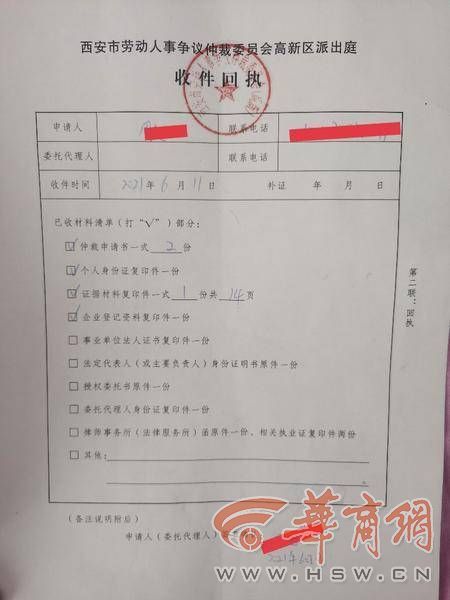 西安市劳动人事争议仲裁委员会高新区派出庭
收件回执
申请人
联系电话
委托代理人
联系电话
收件时间 2021年6月11日 补证 年 月 日
已收材料清单(打“√”)部分:
☑仲裁申请书一式 2 份
☑个人身份证复印件一份
☑证据材料复印件一式 1 份共 14 页
☑企业登记资料复印件一份
□事业单位法人证书复印件一份
□法定代表人(或主要负责人)身份证明书原件一份
□授权委托书原件一份
□委托代理人身份证复印件一份
□律师事务所(法律服务所)函原件一份、相关执业证复印件两份
□其他:
第二联:回执
(备注说明附后)
申请人(委托代理人)
华商网
WWW.HSW.CN